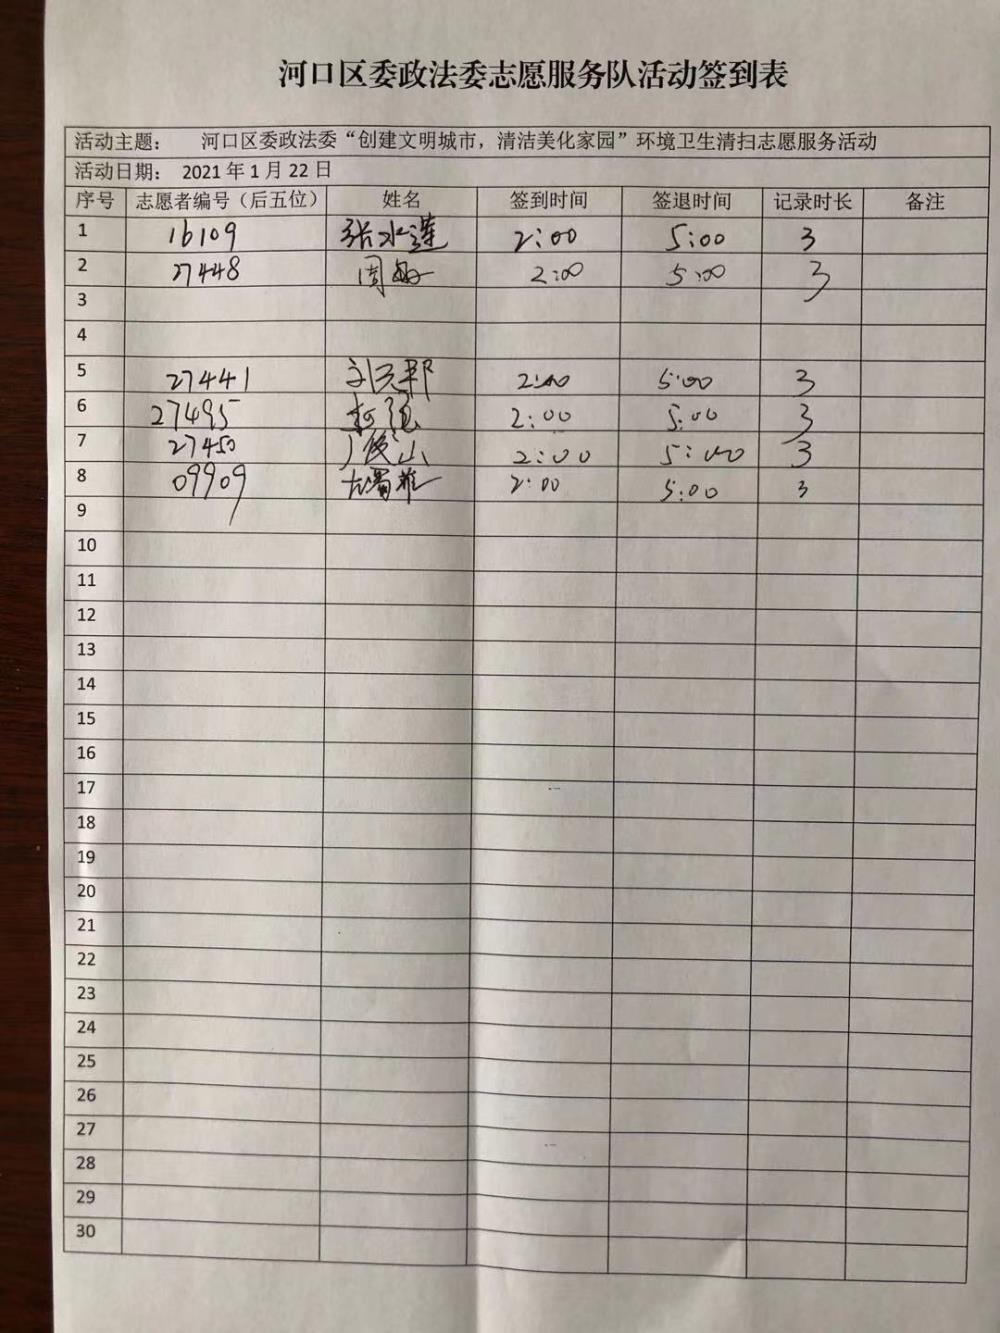 河口区委政法委志愿服务队活动签到表
活动主题： 河口区委政法委“创建文明城市，清洁美化家园”环境卫生清扫志愿服务活动
活动日期： 2021年1月22日
序号 志愿者编号（后五位） 姓名 签到时间 签退时间 记录时长 备注
1 16109 张水莲 2:00 5:00 3
2 27448 周 2:00 5:00 3
3
4
5 27441 2:00 5:00 3
6 27495 2:00 5:00 3
7 27450 2:00 5:00 3
8 09909 2:00 5:00 3
9
10
11
12
13
14
15
16
17
18
19
20
21
22
23
24
25
26
27
28
29
30